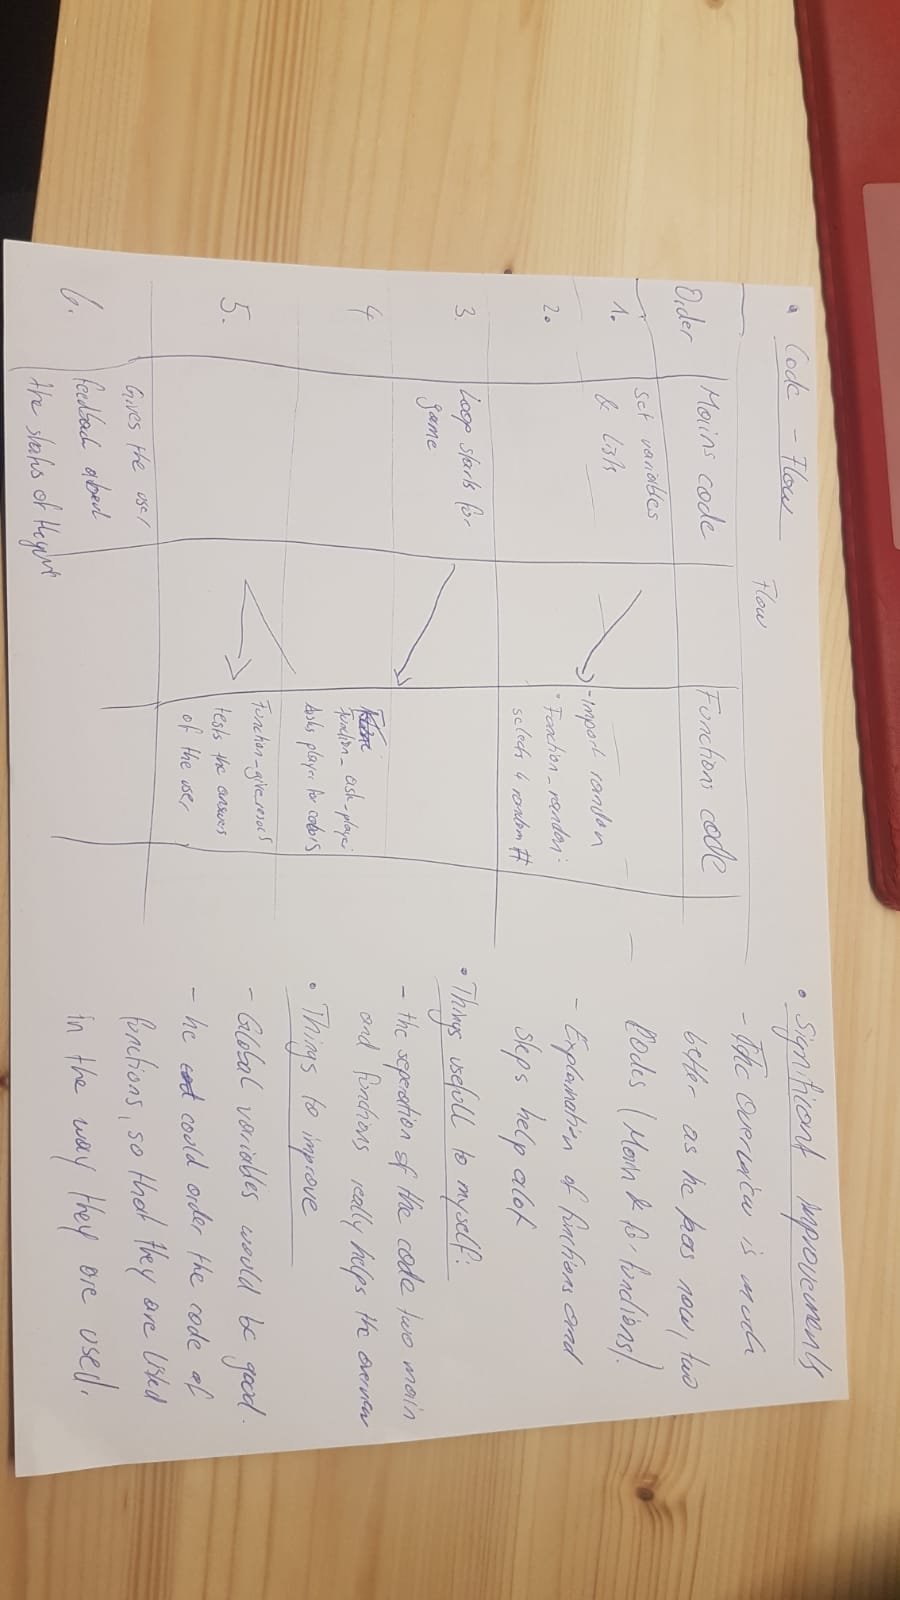 • Code - Flow
Flow
Order
Mains code
Functions code
1.
Set variables
& lists
2.
- import random
• Function_random:
selects 4 random #
3.
Loop starts for
game
4
function_ask_player
asks player for colors
5.
Function_giveresults
tests the answers
of the user
6.
Gives the user
feedback about
the status of the game
• Significant improvements
- The overview is much
better as he has now, two
codes (Main & for functions).
- Explanation of functions and
steps help alot
• Things usefull to myself:
- the seperation of the code two main
and functions really helps the overview
• Things to improve
- Global variables would be good.
- he could order the code of
functions, so that they are listed
in the way they are used.